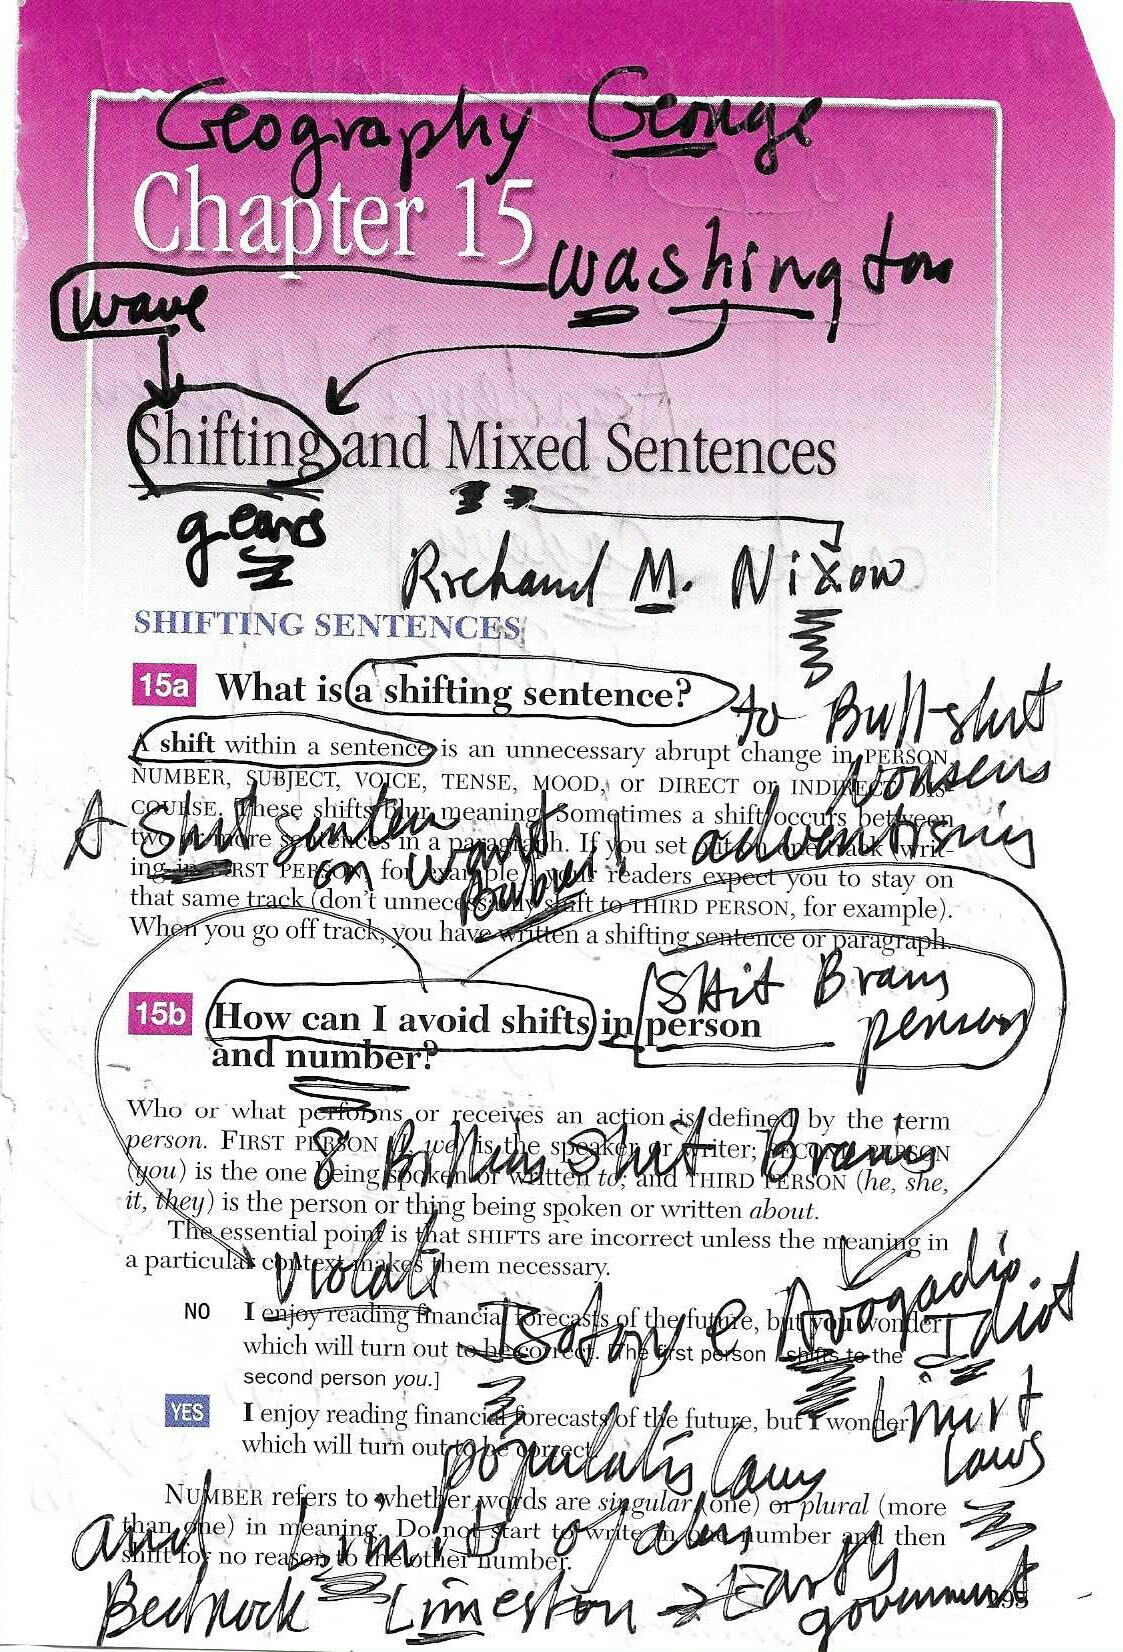 Geography George
Chapter 15
Washington
wave
Shifting and Mixed Sentences
gears
Richard M. Nixon
SHIFTING SENTENCES
15a What is a shifting sentence?
to Bull-shit
A shift within a sentence is an unnecessary abrupt change in PERSON,
Nonsens
NUMBER, SUBJECT, VOICE, TENSE, MOOD, or DIRECT or INDIRECT DIS-
COURSE. These shifts blur meaning. Sometimes a shift occurs between
A shit senten
two or more sentences in a paragraph. If you set out on one track (writ-
ing in FIRST PERSON, for example), your readers expect you to stay on
on
that same track (don't unnecessarily shift to THIRD PERSON, for example).
When you go off track, you have written a shifting sentence or paragraph.
Shit Brans
person
15b How can I avoid shifts in person
and number?
Who or what performs or receives an action is defined by the term
8 Billins Shit Brans
person. FIRST PERSON (I, we) is the speaker or writer; SECOND PERSON
(you) is the one being spoken or written to; and THIRD PERSON (he, she,
it, they) is the person or thing being spoken or written about.
The essential point is that SHIFTS are incorrect unless the meaning in
a particular context makes them necessary.
Violats
Isotope Avogadio Idiot
NO I enjoy reading financial forecasts of the future, but you wonder
which will turn out to be correct. [The first person I shifts to the
second person you.]
YES I enjoy reading financial forecasts of the future, but I wonder
which will turn out to be correct.
laws
populatis laws
NUMBER refers to whether words are singular (one) or plural (more
than one) in meaning. Do not start to write in one number and then
and Limits of
shift for no reason to the other number.
Bedrock Limeston → Earth
government
295